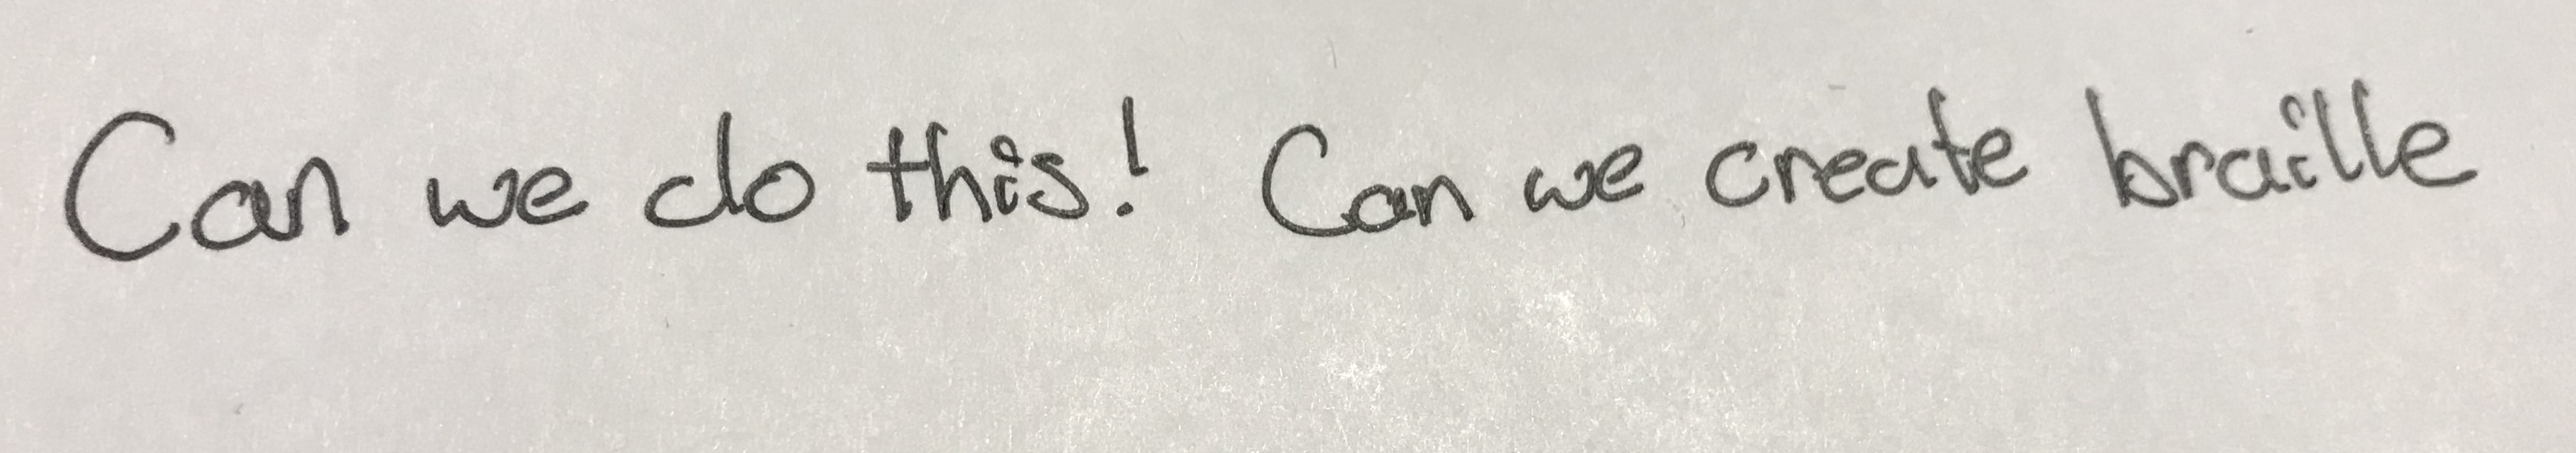 Can we do this! Can we create braille